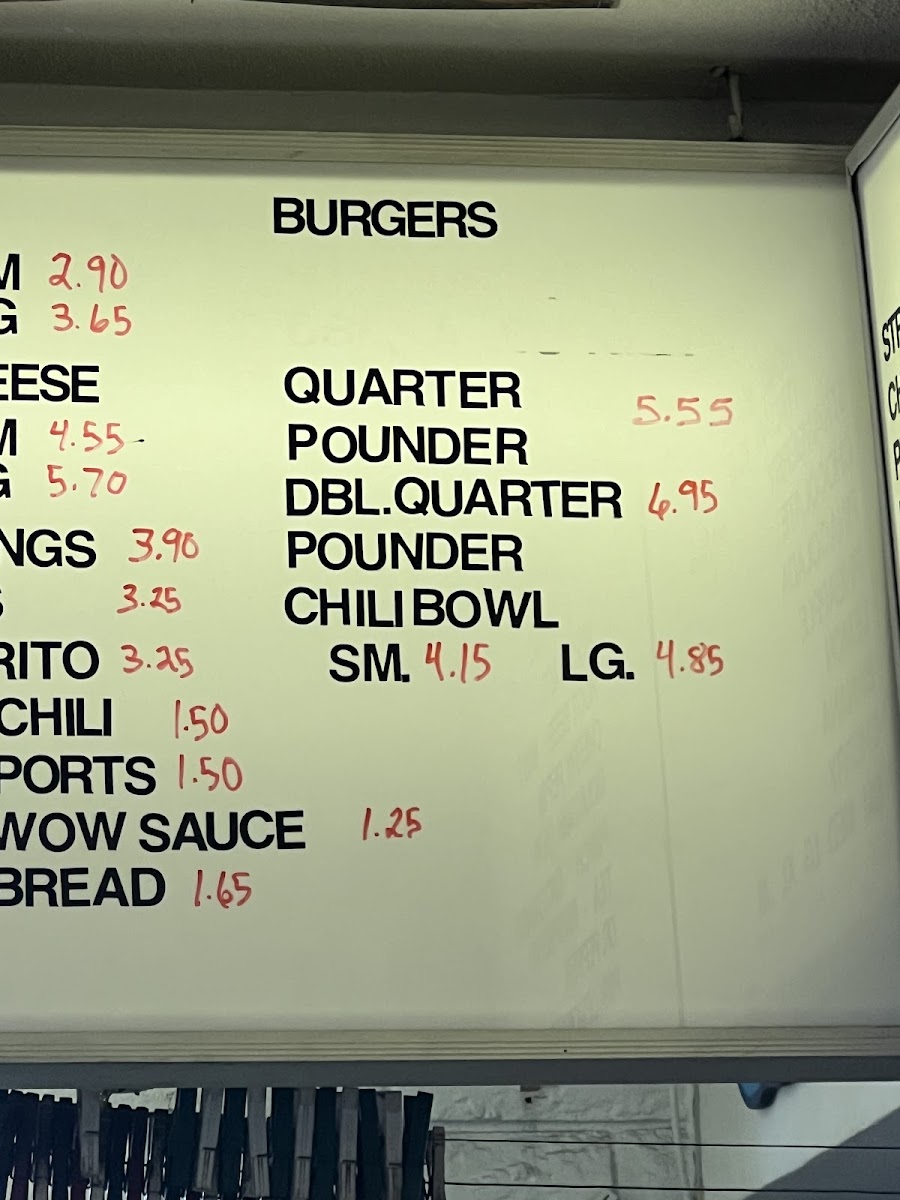 BURGERS
M 2.90
G 3.65
EESE
M 4.55
G 5.70
NGS 3.90
S 3.25
RITO 3.25
CHILI 1.50
PORTS 1.50
WOW SAUCE 1.25
BREAD 1.65
QUARTER
POUNDER 5.55
DBL.QUARTER 6.95
POUNDER
CHILI BOWL
SM. 4.15 LG. 4.85